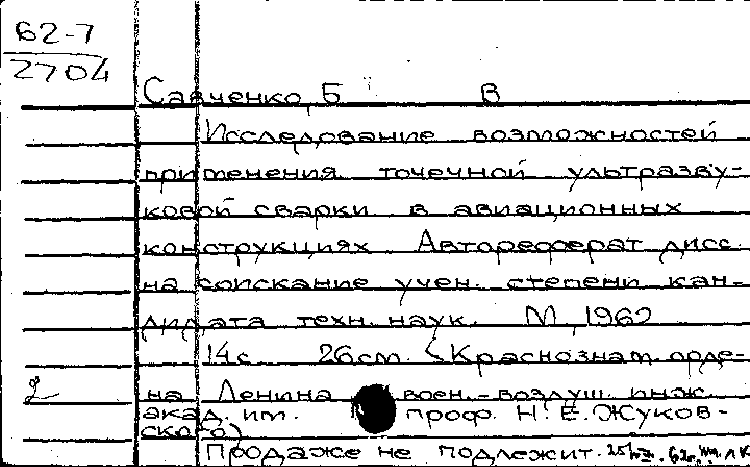 62-7
2704
Савченко, Б В
Исследование возможностей
применения точечной ультразву-
ковой сварки в авиационных
конструкциях Автореферат дисс.
на соискание учен. степени кан-
дидата техн. наук. М, 1962
14с 26см. (Краснознам. орде-
2 на Ленина воен.-воздуш. инж.
акад. им. проф. Н. Е. Жуков-
ского)
Продаже не подлежит.